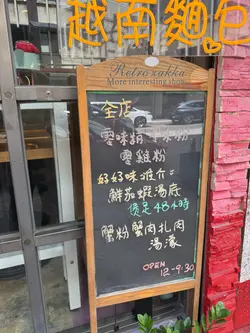 越南麵包
Retro zakka
More interesting shop
全店
零味精 零味粉
零雞粉
好好味推介:
鮮茄蝦湯底
煲足48小時
蟹粉蟹肉扎肉
湯濛
OPEN
12-9.30